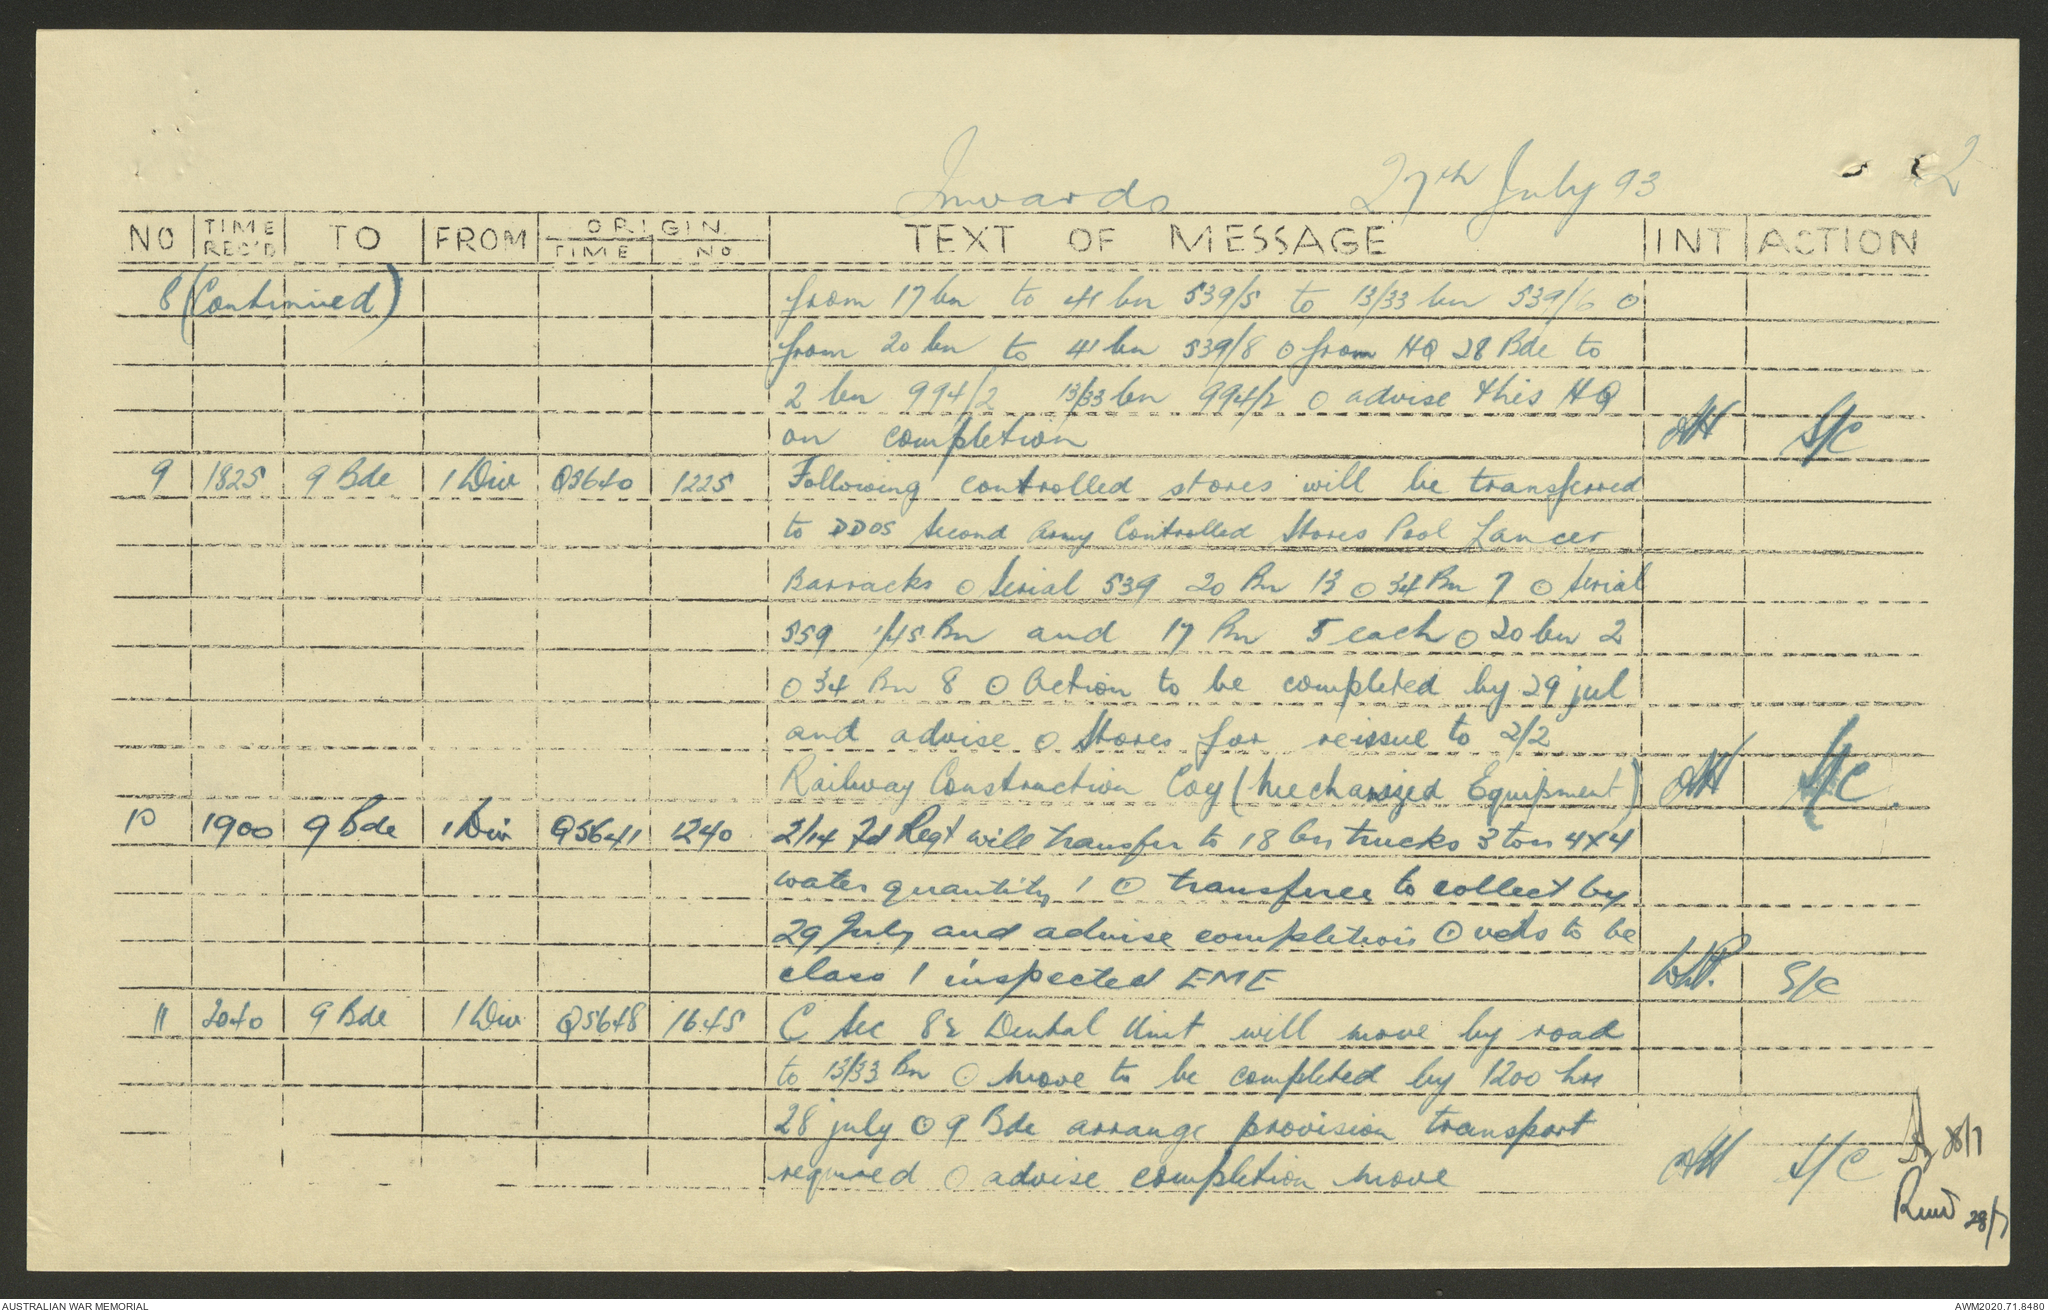 Inwards 27th July 93 2
NO TIME REC'D TO FROM ORIGIN TIME NO TEXT OF MESSAGE INT ACTION
8 (Continued) from 17 bn to 41 bn 539/5 to 13/33 bn 539/6 ⊙
from 20 bn to 41 bn 539/8 ⊙ from HQ 28 Bde to
2 bn 994/2 13/33 bn 994/2 ⊙ advise this HQ
on completion S/C
9 1825 9 Bde 1 Div Q5640 1225 Following controlled stores will be transferred
to DDOS Second Army Controlled Stores Pool Lancer
Barracks ⊙ Serial 539 20 Bn 13 ⊙ 34 Bn 7 ⊙ Serial
559 1/45 Bn and 17 Bn 5 each ⊙ 20 bn 2
⊙ 34 Bn 8 ⊙ Action to be completed by 29 jul
and advise ⊙ Stores for reissue to 2/2
Railway Construction Coy (Mechanized Equipment) S/C.
10 1900 9 Bde 1 Div Q5641 1240 2/14 Fd Regt will transfer to 18 bn trucks 3 ton 4x4
water quantity 1 ⊙ transferee to collect by
29 July and advise completion ⊙ vehs to be
class 1 inspected EME S/C
11 2040 9 Bde 1 Div Q5648 1645 C Sec 82 Dental Unit will move by road
to 13/33 Bn ⊙ Move to be completed by 1200 hrs
28 july ⊙ 9 Bde arrange provision transport
required ⊙ advise completion move S/C
28/7
28/7
AUSTRALIAN WAR MEMORIAL AWM2020.71.8480